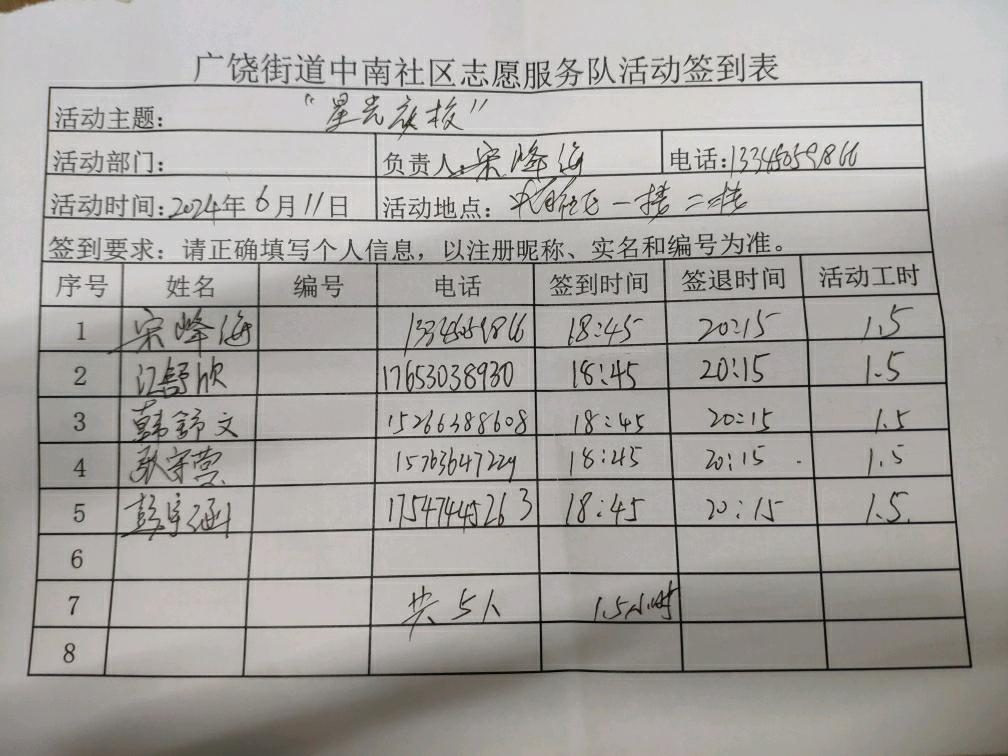 广饶街道中南社区志愿服务队活动签到表
活动主题： "星光夜校"
活动部门： 负责人：宋峰海 电话：13345059866
活动时间：2024年6月11日 活动地点： 一楼二楼
签到要求：请正确填写个人信息，以注册昵称、实名和编号为准。
序号 姓名 编号 电话 签到时间 签退时间 活动工时
1 宋峰海 18:45 20:15 1.5
2 江舒欣 17653038930 18:45 20:15 1.5
3 韩舒文 15266388608 18:45 20:15 1.5
4 15763647229 18:45 20:15 1.5
5 彭宇涵 17547445263 18:45 20:15 1.5
6
7 共5人 1.5小时
8